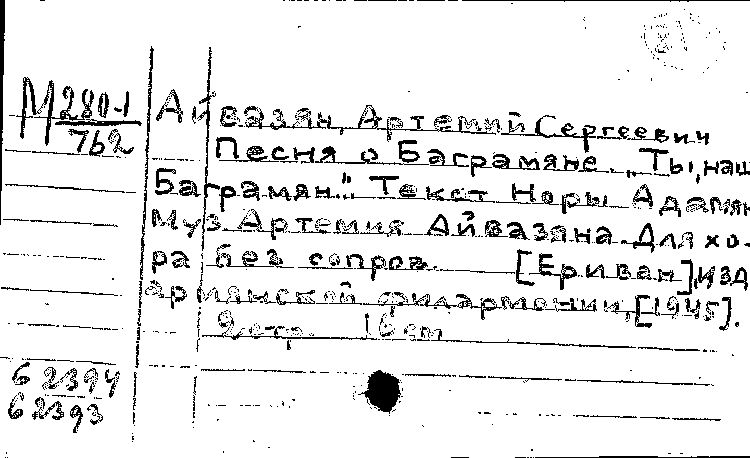 М 280-1
762
Айвазян, Артемий Сергеевич
Песня о Баграмяне. „Ты, наш
Баграмян". Текст Норы Адамян
Муз. Артемия Айвазяна. Для хо-
ра без сопров. [Ериван], изд.
армянской филармонии, [1945].
2 стр. 16 см
62394
62393